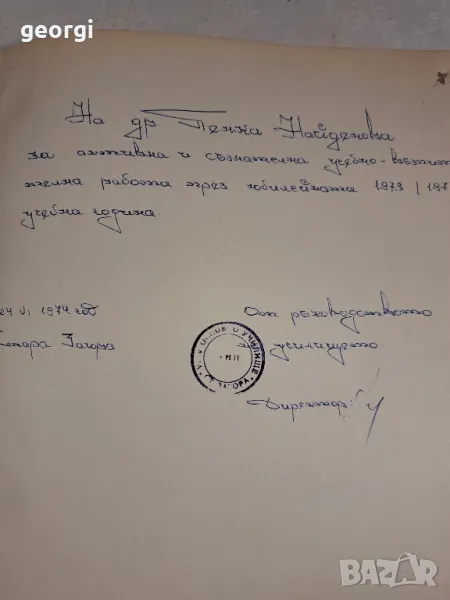 georgi
На др Пенка Найденова
за активна и съзнателна учебно-възпит
ателна работа през юбилейната 1973 / 197
учебна година.
24 VI 1974 год
Стара Загора
От ръководството
на училището
Директор:
УЧИЛИЩЕ
BAZAR